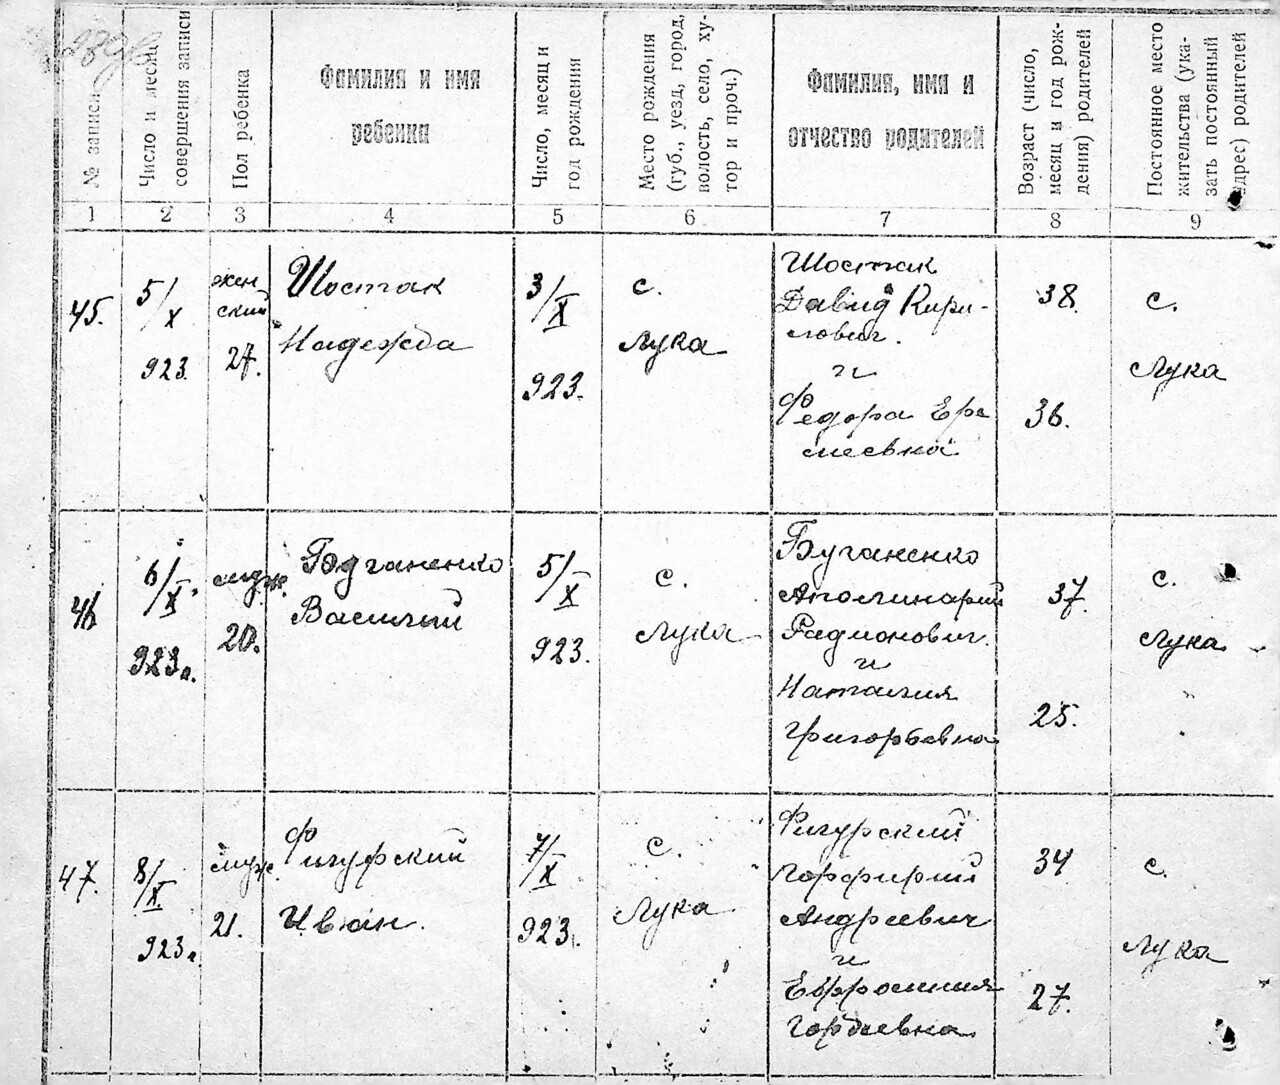 № записи
Число и месяц
совершения записи
Пол ребенка
Фамилия и имя
ребенка
Число, месяц и
год рождения
Место рождения
(губ., уезд, город,
волость, село, ху-
тор и проч.)
Фамилия, имя и
отчество родителей
Возраст (число,
месяц и год рож-
дения) родителей
Постоянное место
жительства (ука-
зать постоянный
адрес) родителей
1 2 3 4 5 6 7 8 9
45.
5/X
923.
жен
ский
27.
Шостак
Надежда
3/X
923.
с.
Лука
Шостак
Давид Кири-
лович.
и
Федора Ере
меевна
38.
36.
с.
Лука
46
6/X.
923г.
муж.
20.
Буганенко
Василий
5/X
923.
с.
Лука
Буганенко
Аполинарий
Радионович.
и
Наталия
Григорьевна
37.
25.
с.
Лука
47.
8/X.
923г.
муж.
21.
Фигурский
Иван.
7/X
923.
с.
Лука
Фигурский
Порфирий
Андреевич
и
Ефросиния
Гордеевна
34
27.
с.
Лука